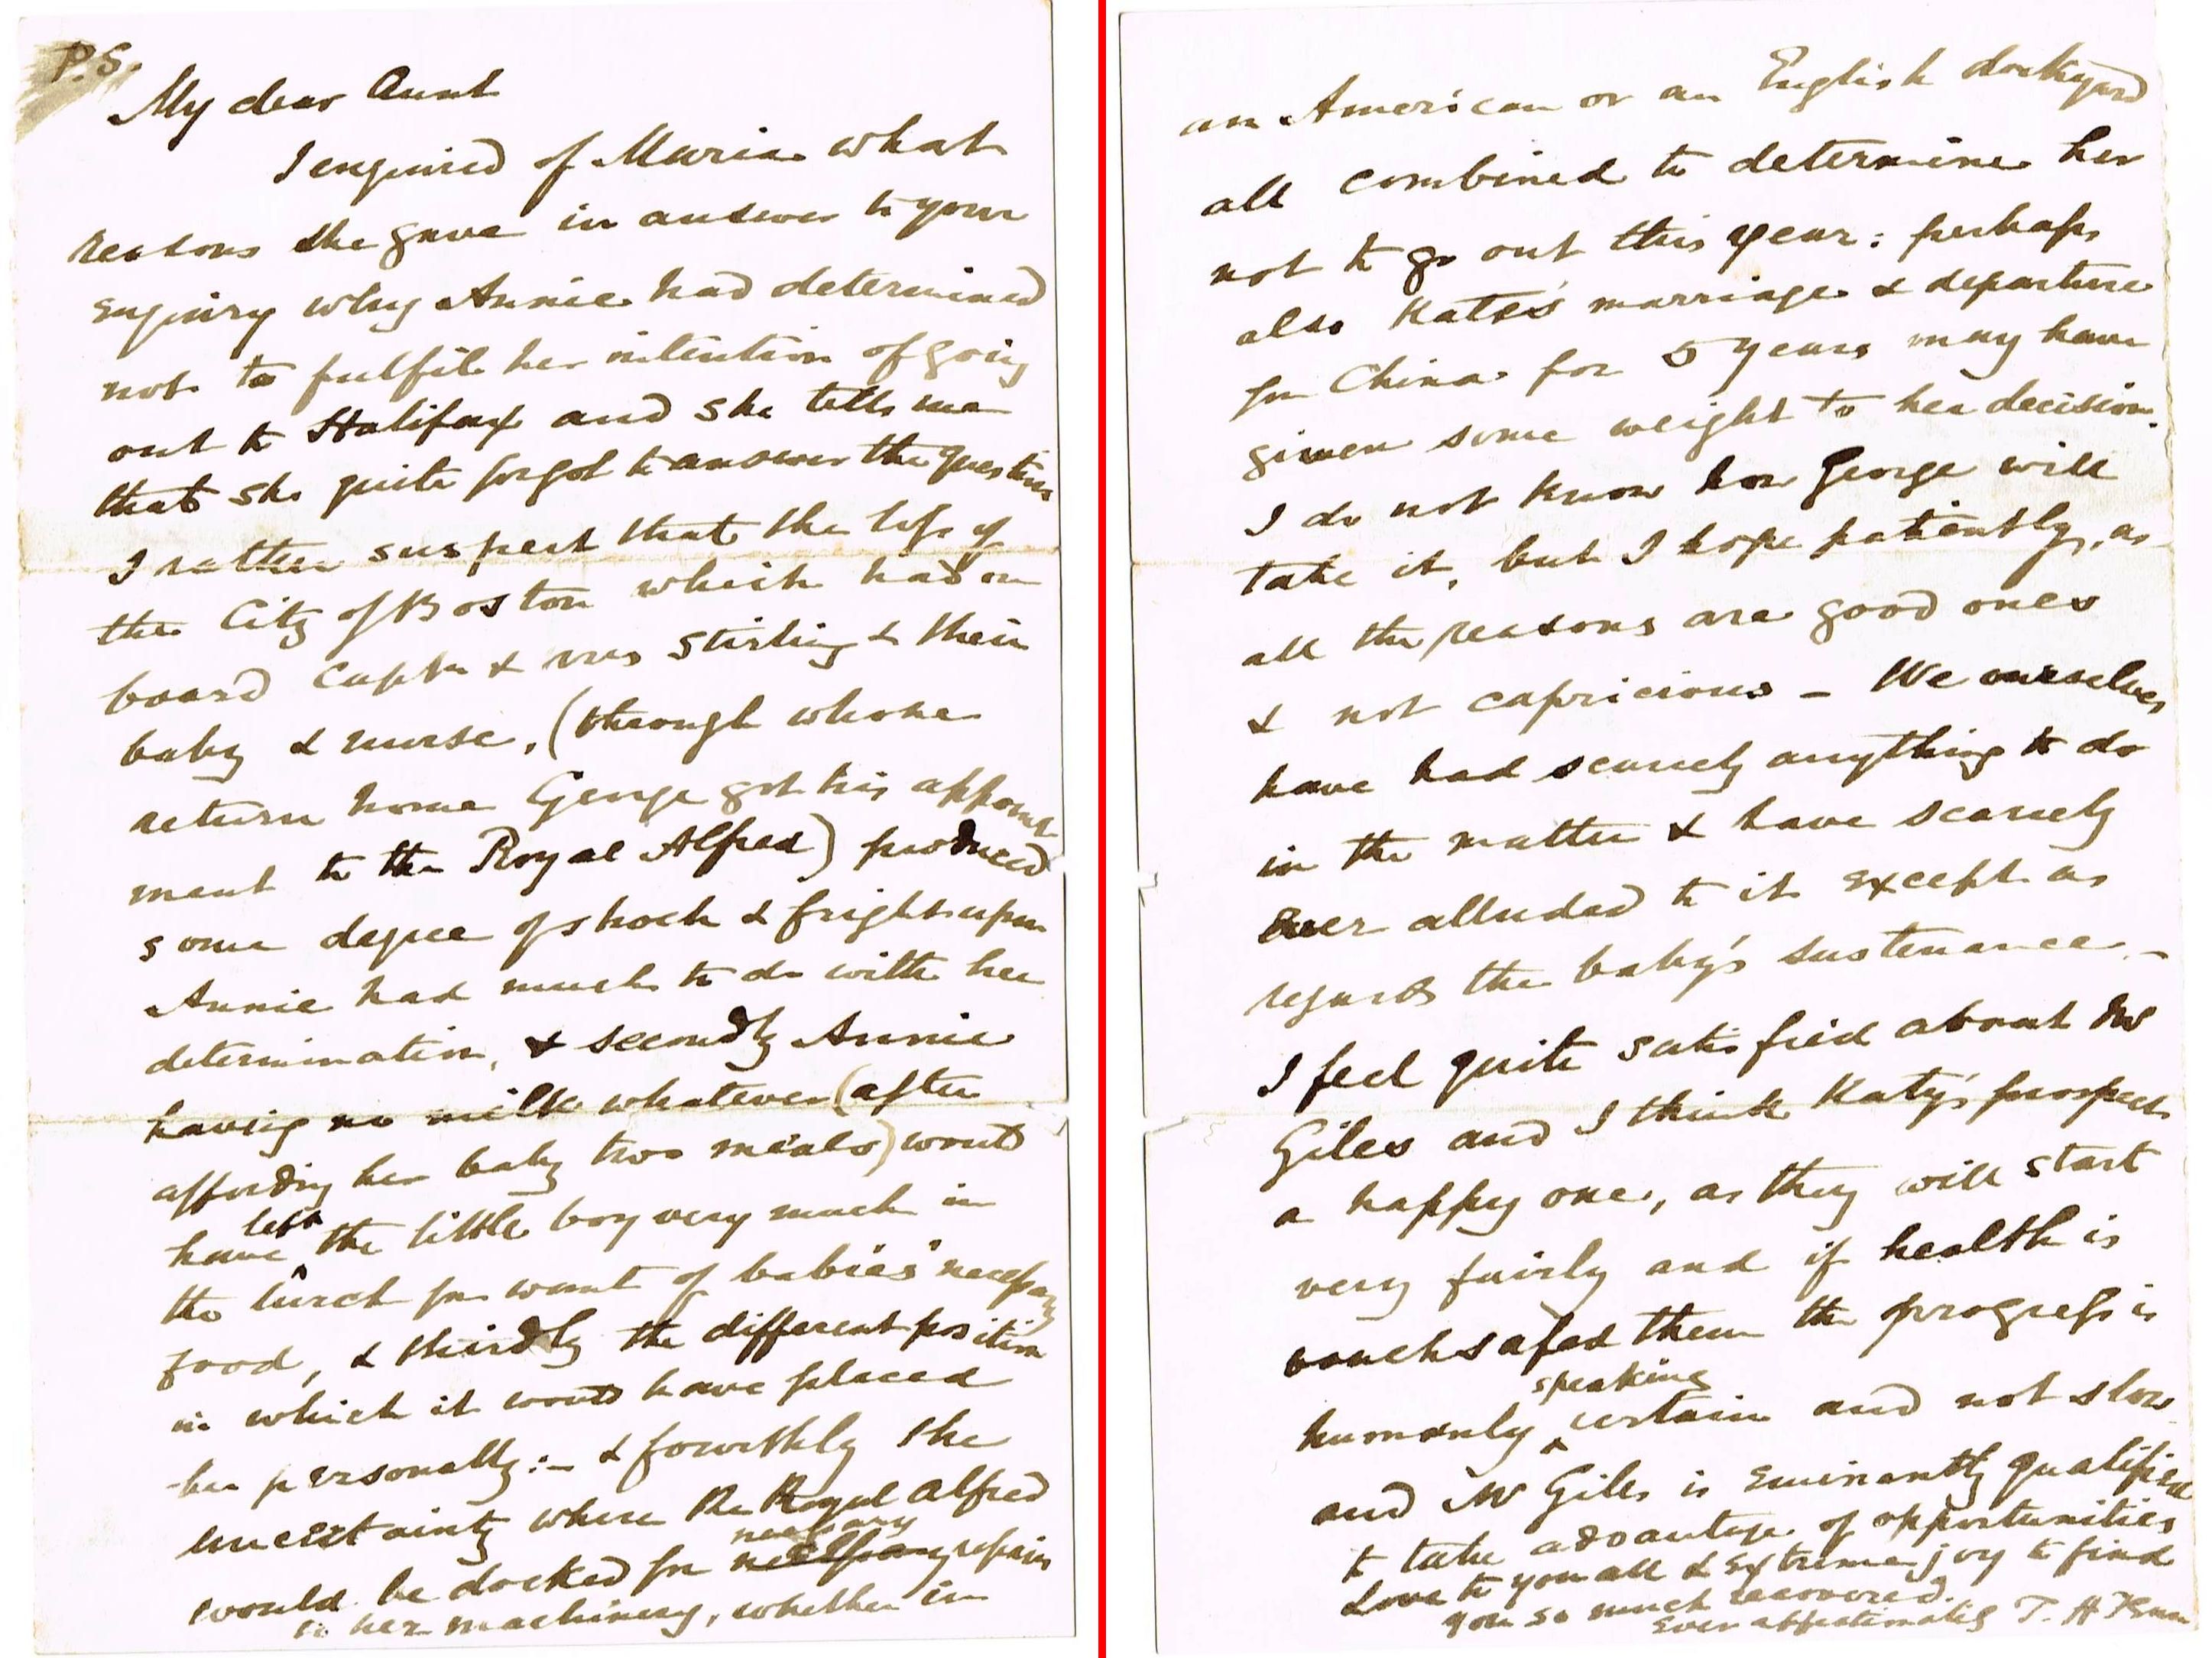 P.S.
My dear Aunt
I enquired of Maria what
reasons she gave in answer to your
enquiry why Annie had determined
not to fulfil her intention of going
out to Halifax and she tells me
that she quite forgot to answer the question
I rather suspect that the loss of
the City of Boston which had on
board Captn & Mrs Stirling & their
baby & nurse, (through whose
return home George got his appoint
ment to the Royal Alfred) produced
some degree of shock & fright upon
Annie had much to do with her
determination, & secondly Annie
having no milk whatever (after
affording her baby two meals) would
have left the little boy very much in
the lurch for want of babies' necessary
food, & thirdly the different position
in which it would have placed
her personally:- & fourthly the
uncertainty where the Royal Alfred
would be docked for necessary repairs
to her machinery, whether in
an American or an English dockyard
all combined to determine her
not to go out this year: perhaps
also Kate's marriage & departure
for China for 5 years may have
given some weight to her decision.
I do not know how George will
take it, but I hope patiently, as
all the reasons are good ones
& not capricious - We ourselves
have had scarcely anything to do
in the matter & have scarcely
ever alluded to it except as
regards the baby's sustenance. -
I feel quite satisfied about Mr
Giles and I think Katy's prospect
a happy one, as they will start
very fairly and if health is
vouchsafed them the progress is
humanly speaking certain and not slow
and Mr Giles is eminently qualified
to take advantage of opportunities
Love to you all & extreme joy to find
you so much recovered.
Ever affectionately T. H.